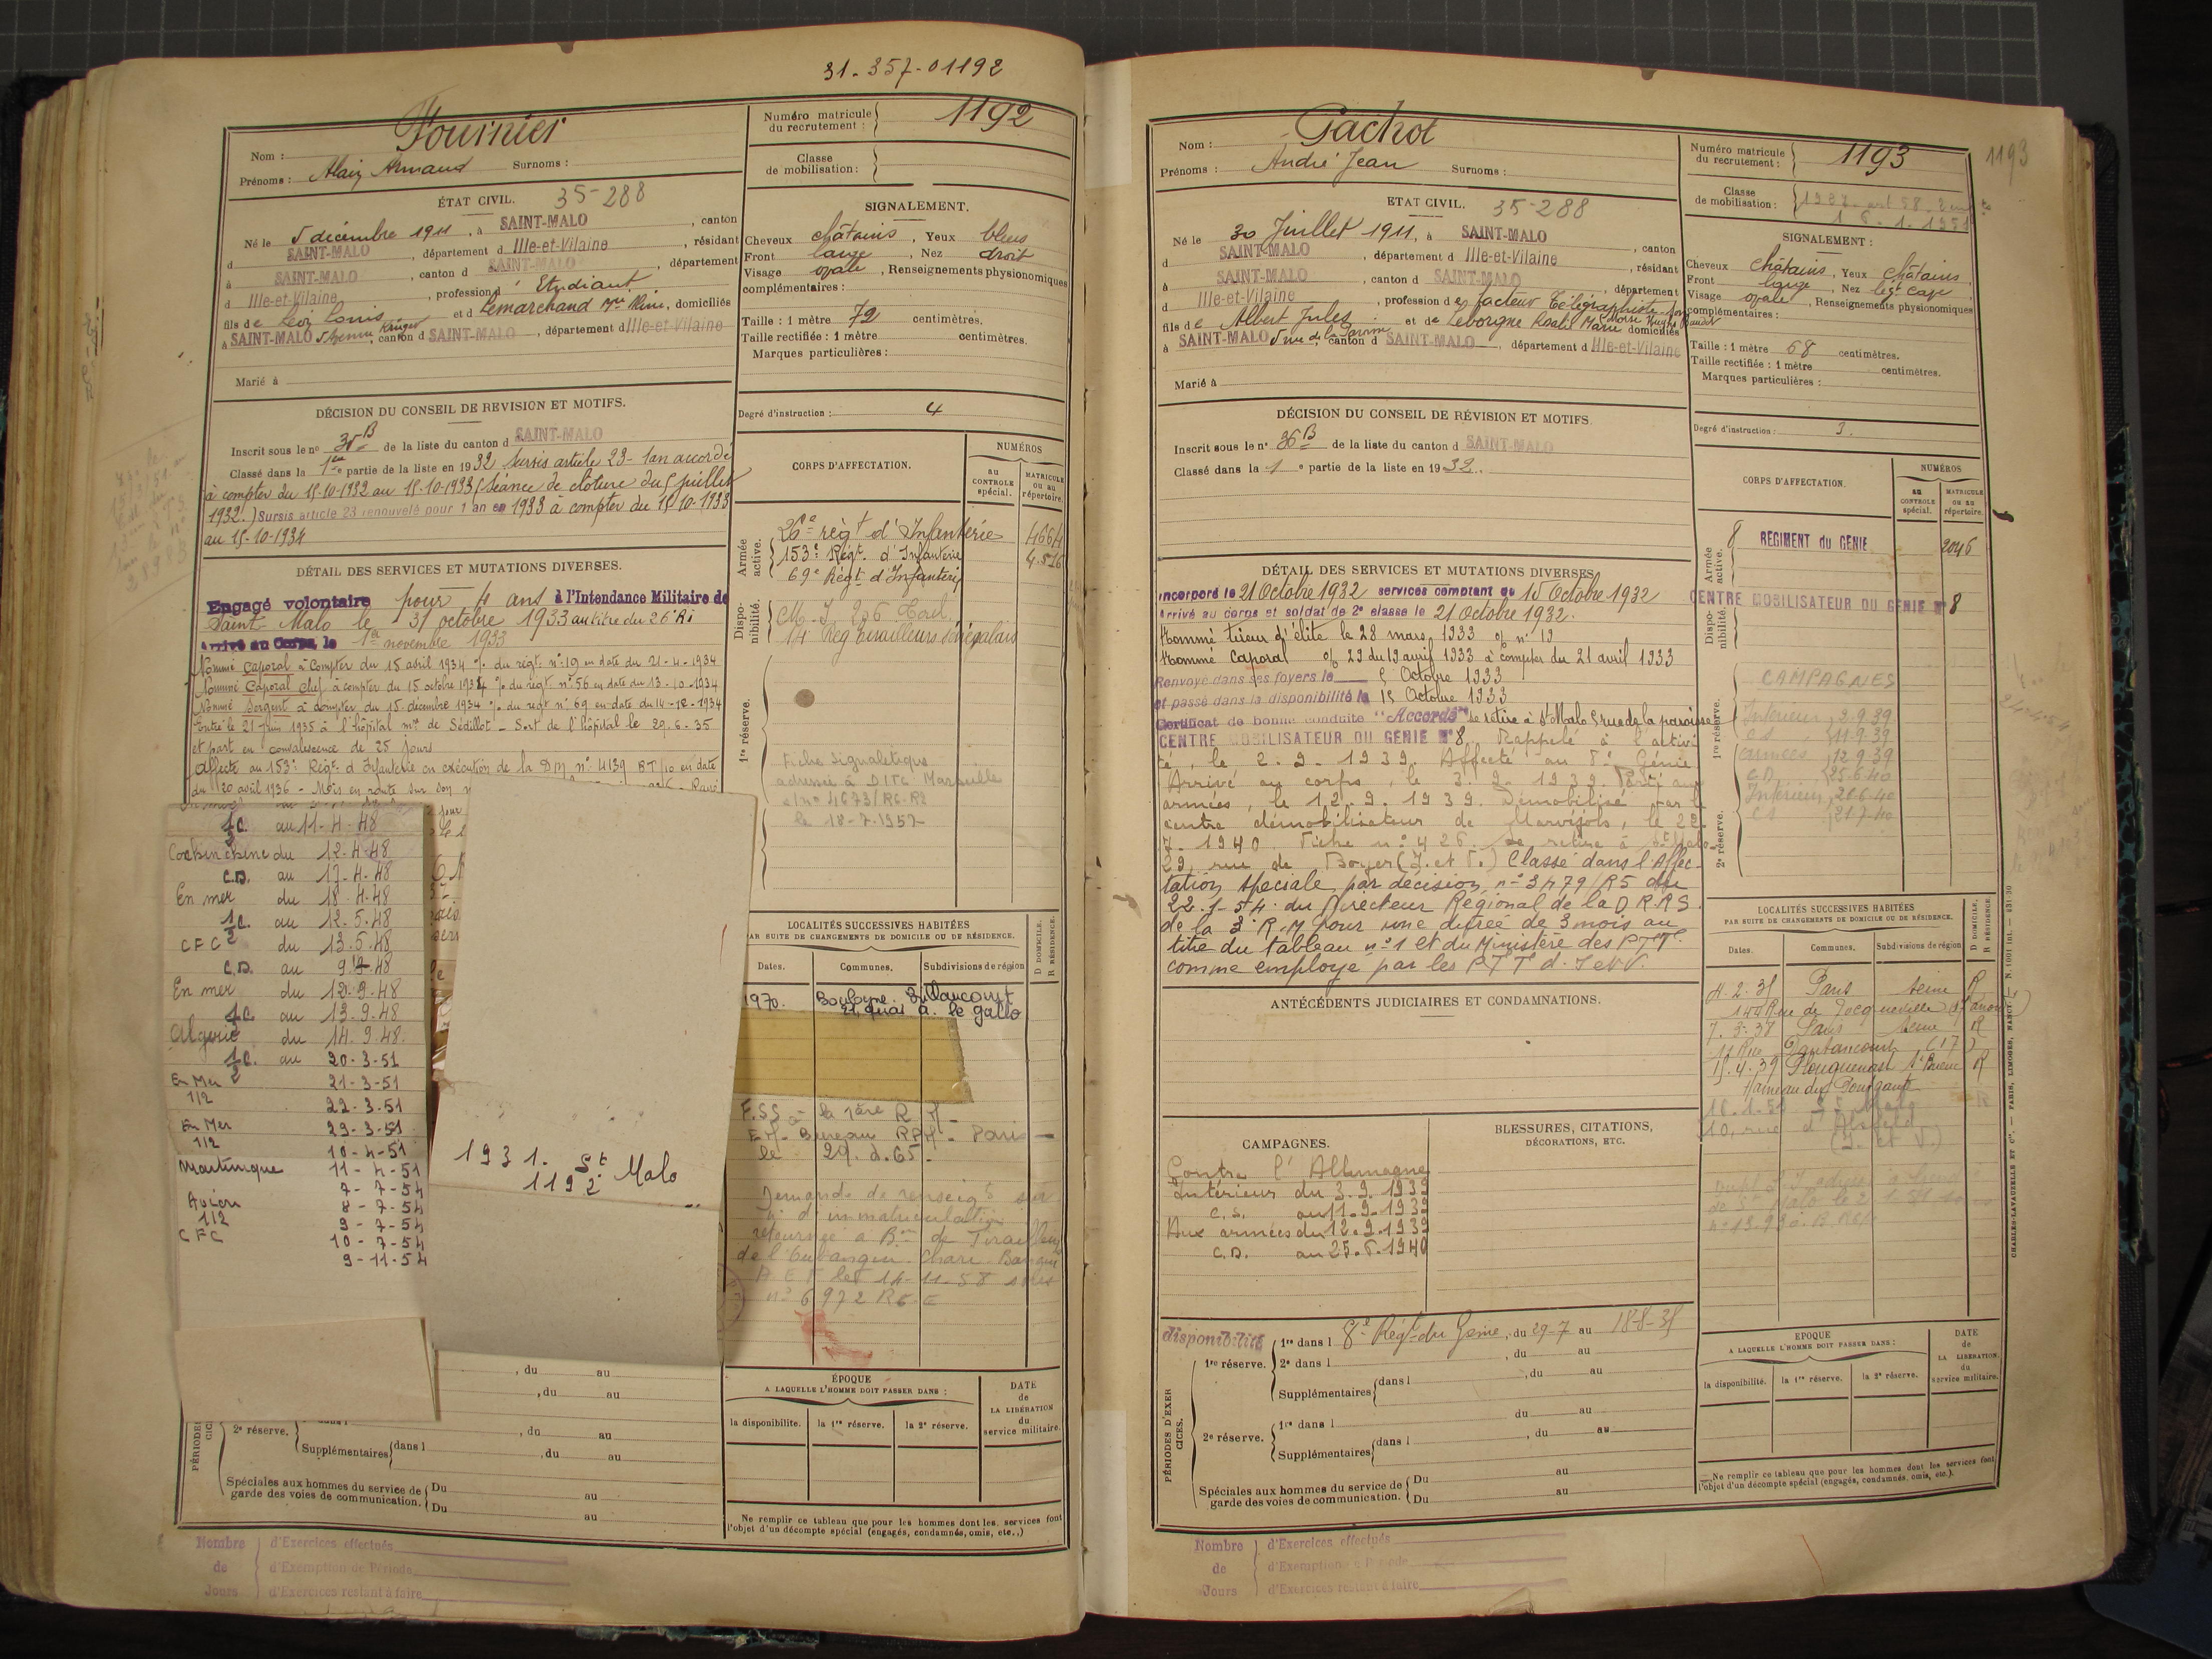 31-357-01192
Nom : Fournier
Prénoms : Alain Armand Surnoms :
Numéro matricule du recrutement : 1192
Classe de mobilisation :
ÉTAT CIVIL. 35-288
Né le 5 décembre 1911, à SAINT-MALO, canton
d SAINT-MALO, département d Ille-et-Vilaine, résidant
à SAINT-MALO, canton d SAINT-MALO, département
d Ille-et-Vilaine, profession d' Etudiant
fils de Léon Louis et d Lemarchand, domiciliés
à SAINT-MALO canton d SAINT-MALO, département d Ille-et-Vilaine
Marié à
SIGNALEMENT.
Cheveux châtains, Yeux bleus
Front large, Nez droit
Visage ovale, Renseignements physionomiques
complémentaires :
Taille : 1 mètre 72 centimètres.
Taille rectifiée : 1 mètre centimètres.
Marques particulières :
Degré d'instruction : 4
DÉCISION DU CONSEIL DE REVISION ET MOTIFS.
Inscrit sous le n° 35 B de la liste du canton d SAINT-MALO
Classé dans la 1ère partie de la liste en 1932 Sursis article 23 - 1 an accordé
à compter du 15-10-1932 au 15-10-1933 (Séance de clôture du 5 juillet
1932.) Sursis article 23 renouvelé pour 1 an en 1933 à compter du 15-10-1933
au 15-10-1934
DÉTAIL DES SERVICES ET MUTATIONS DIVERSES.
Engagé volontaire pour 4 ans à l'Intendance Militaire de
Saint Malo le 31 octobre 1933 au titre du 26e RI
Arrivé au Corps le 1er novembre 1933
Nommé Caporal à compter du 15 avril 1934 % du régt. n° 19 en date du 21-4-1934
Nommé Caporal Chef à compter du 15 octobre 1934 % du régt. n° 56 en date du 13-10-1934
Nommé Sergent à compter du 15 décembre 1934 % du régt n° 69 en date du 14-12-1934
Entré le 21 juin 1935 à l'hôpital mre de Sédillot - Sort de l'hôpital le 29.6.35
et part en convalescence de 25 jours
Affecté au 153e Régt. d'Infanterie en exécution de la DM n° 4139 BT/10 en date
du 20 avril 1936 - Mis en route sur son
CORPS D'AFFECTATION.
NUMÉROS
au CONTROLE spécial.
MATRICULE ou au répertoire.
Armée active.
26e régt d'Infanterie 4664
153e Régt. d'Infanterie 4.516
69e Régt d'Infanterie
Disponibilité.
14 Rég tirailleurs sénégalais
1re réserve.
Fiche signalétique
adressée à DITC Marseille
s/n° 4673/RC-R2
le 18-7-1957
1/2 C. au 11-4-48
Cochinchine du 12-4-48
C.D. au 17-4-48
En mer du 18-4-48
1/2 C. au 12-5-48
CFC du 13-5-48
C.D. au 9-9-48
En mer du 10-9-48
1/2 C. au 13-9-48
Algérie du 14.9.48.
1/2 C. au 20-3-51
En Mer 21-3-51
1/2 22-3-51
En Mer 29-3-51
1/2 10-4-51
Martinique 11-4-51
7-7-54
Avion 8-7-54
1/2 9-7-54
CFC 10-7-54
9-11-54
1931. St Malo
1192
LOCALITÉS SUCCESSIVES HABITÉES
PAR SUITE DE CHANGEMENTS DE DOMICILE OU DE RÉSIDENCE.
D DOMICILE. R RÉSIDENCE.
Dates. Communes. Subdivisions de région
1970. Boulogne-Billancourt
21, quai A. le Gallo
F.SS à la 1ère R M -
EM-Bureau RPM - Paris -
le 29.2.65-
Demande de renseigts sur
n° d'immatriculation
retournée à Bon de Tirailleurs
de l'Oubangui Chari Bangui
A E F le 14-11-58 sous
n° 6972 RC-E
ÉPOQUE
A LAQUELLE L'HOMME DOIT PASSER DANS :
la disponibilité. la 1re réserve. la 2e réserve.
DATE de LA LIBÉRATION du service militaire.
, du au
, du au
2e réserve. , du au
Supplémentaires dans l , du au
Spéciales aux hommes du service de garde des voies de communication. Du au
Du au
Ne remplir ce tableau que pour les hommes dont les services font
l'objet d'un décompte spécial (engagés, condamnés, omis, etc.,)
Nombre de Jours
d'Exercices effectués
d'Exemption de Période
d'Exercices restant à faire
Nom : Gachot
Prénoms : André Jean Surnoms :
Numéro matricule du recrutement : 1193
1193
Classe de mobilisation :
ETAT CIVIL. 35-288
Né le 30 Juillet 1911, à SAINT-MALO, canton
d SAINT-MALO, département d Ille-et-Vilaine, résidant
à SAINT-MALO, canton d SAINT-MALO, département
d Ille-et-Vilaine, profession de facteur Télégraphiste
fils de Albert Jules et de Leborgne Rosalie Marie domiciliés
à SAINT-MALO 5 rue de la Paroisse, canton d SAINT-MALO, département d Ille-et-Vilaine
Marié à
SIGNALEMENT :
Cheveux châtains, Yeux châtains
Front large, Nez légt cave
Visage ovale, Renseignements physionomiques
complémentaires :
Taille : 1 mètre 68 centimètres.
Taille rectifiée : 1 mètre centimètres.
Marques particulières :
Degré d'instruction : 3.
DÉCISION DU CONSEIL DE RÉVISION ET MOTIFS.
Inscrit sous le n° 36 B de la liste du canton d SAINT-MALO
Classé dans la 1e partie de la liste en 1932.
DÉTAIL DES SERVICES ET MUTATIONS DIVERSES
Incorporé le 21 Octobre 1932 services comptant du 15 Octobre 1932
Arrivé au corps et soldat de 2e classe le 21 octobre 1932.
Nommé tireur d'élite le 28 mars 1933 % n° 19
Nommé Caporal % 29 du 19 avril 1933 à compter du 21 avril 1933
Renvoyé dans ses foyers le 5 Octobre 1933
et passé dans la disponibilité le 15 Octobre 1933
Certificat de bonne conduite "Accordé" se retire à St Malo 5 rue de la paroisse
CENTRE MOBILISATEUR DU GÉNIE N° 8. Rappelé à l'activi
té, le 2-9-1939. Affecté au 8e Génie
Arrivé au corps, le 3-9-1939 Parti aux
armées, le 12.9.1939. Démobilisé par le
centre démobilisateur de Marvejols, le 22
7.1940. Fiche n° 426. se retire à St Malo
29, rue de Boyer (I. et V.) Classé dans l'Affec-
tation spéciale par décision n° 3479/R5 du
22-1-54 du Directeur Régional de la D.R.RS
de la 3e R.M pour une durée de 3 mois au
titre du tableau n° 1 et du Ministère des PTT
comme employé par les PTT d. I et V.
CORPS D'AFFECTATION.
NUMÉROS
au CONTROLE spécial.
MATRICULE ou au répertoire.
Armée active.
8 REGIMENT du GENIE 2046
Disponibilité.
CENTRE MOBILISATEUR DU GÉNIE N° 8
1re réserve.
CAMPAGNES
Intérieur 2.9.39
CS 11-9-39
Armées 12.9.39
C.D. 25.6.40
Intérieur 26.6.40
CS 21.7.40
2e réserve.
ANTÉCÉDENTS JUDICIAIRES ET CONDAMNATIONS.
CAMPAGNES.
Contre l'Allemagne
Intérieur du 3.9.1939
C.S. au 11-9-1939
Aux armées du 12.9.1939
C.D. au 25.6.1940
BLESSURES, CITATIONS,
DÉCORATIONS, ETC.
LOCALITÉS SUCCESSIVES HABITÉES
PAR SUITE DE CHANGEMENTS DE DOMICILE OU DE RÉSIDENCE.
D DOMICILE. R RÉSIDENCE.
Dates. Communes. Subdivisions de région
4.2.35 Paris Seine R
144 Rue de Tocqueville
Paris Seine R
11 Rue Dautancourt (17)
15.4.39 Plouguenast St Brieuc R
Hameau du
disponibilité
PÉRIODES D'EXERCICES.
1re réserve. 1re dans l 8e Régt du Génie, du 29-7 au 18-8-35
2e dans l , du au
Supplémentaires dans l , du au
2e réserve. 1re dans l du au
Supplémentaires dans l , du au
Spéciales aux hommes du service de garde des voies de communication. Du au
Du au
EPOQUE
A LAQUELLE L'HOMME DOIT PASSER DANS :
la disponibilité. la 1re réserve. la 2e réserve.
DATE de LA LIBERATION du service militaire.
Ne remplir ce tableau que pour les hommes dont les services font
l'objet d'un décompte spécial (engagés, condamnés, omis, etc.).
Nombre de Jours
d'Exercices effectués
d'Exemptions de Période
d'Exercices restant à faire
CHARLES-LAVAUZELLE ET Cie. — PARIS, LIMOGES, NANCY